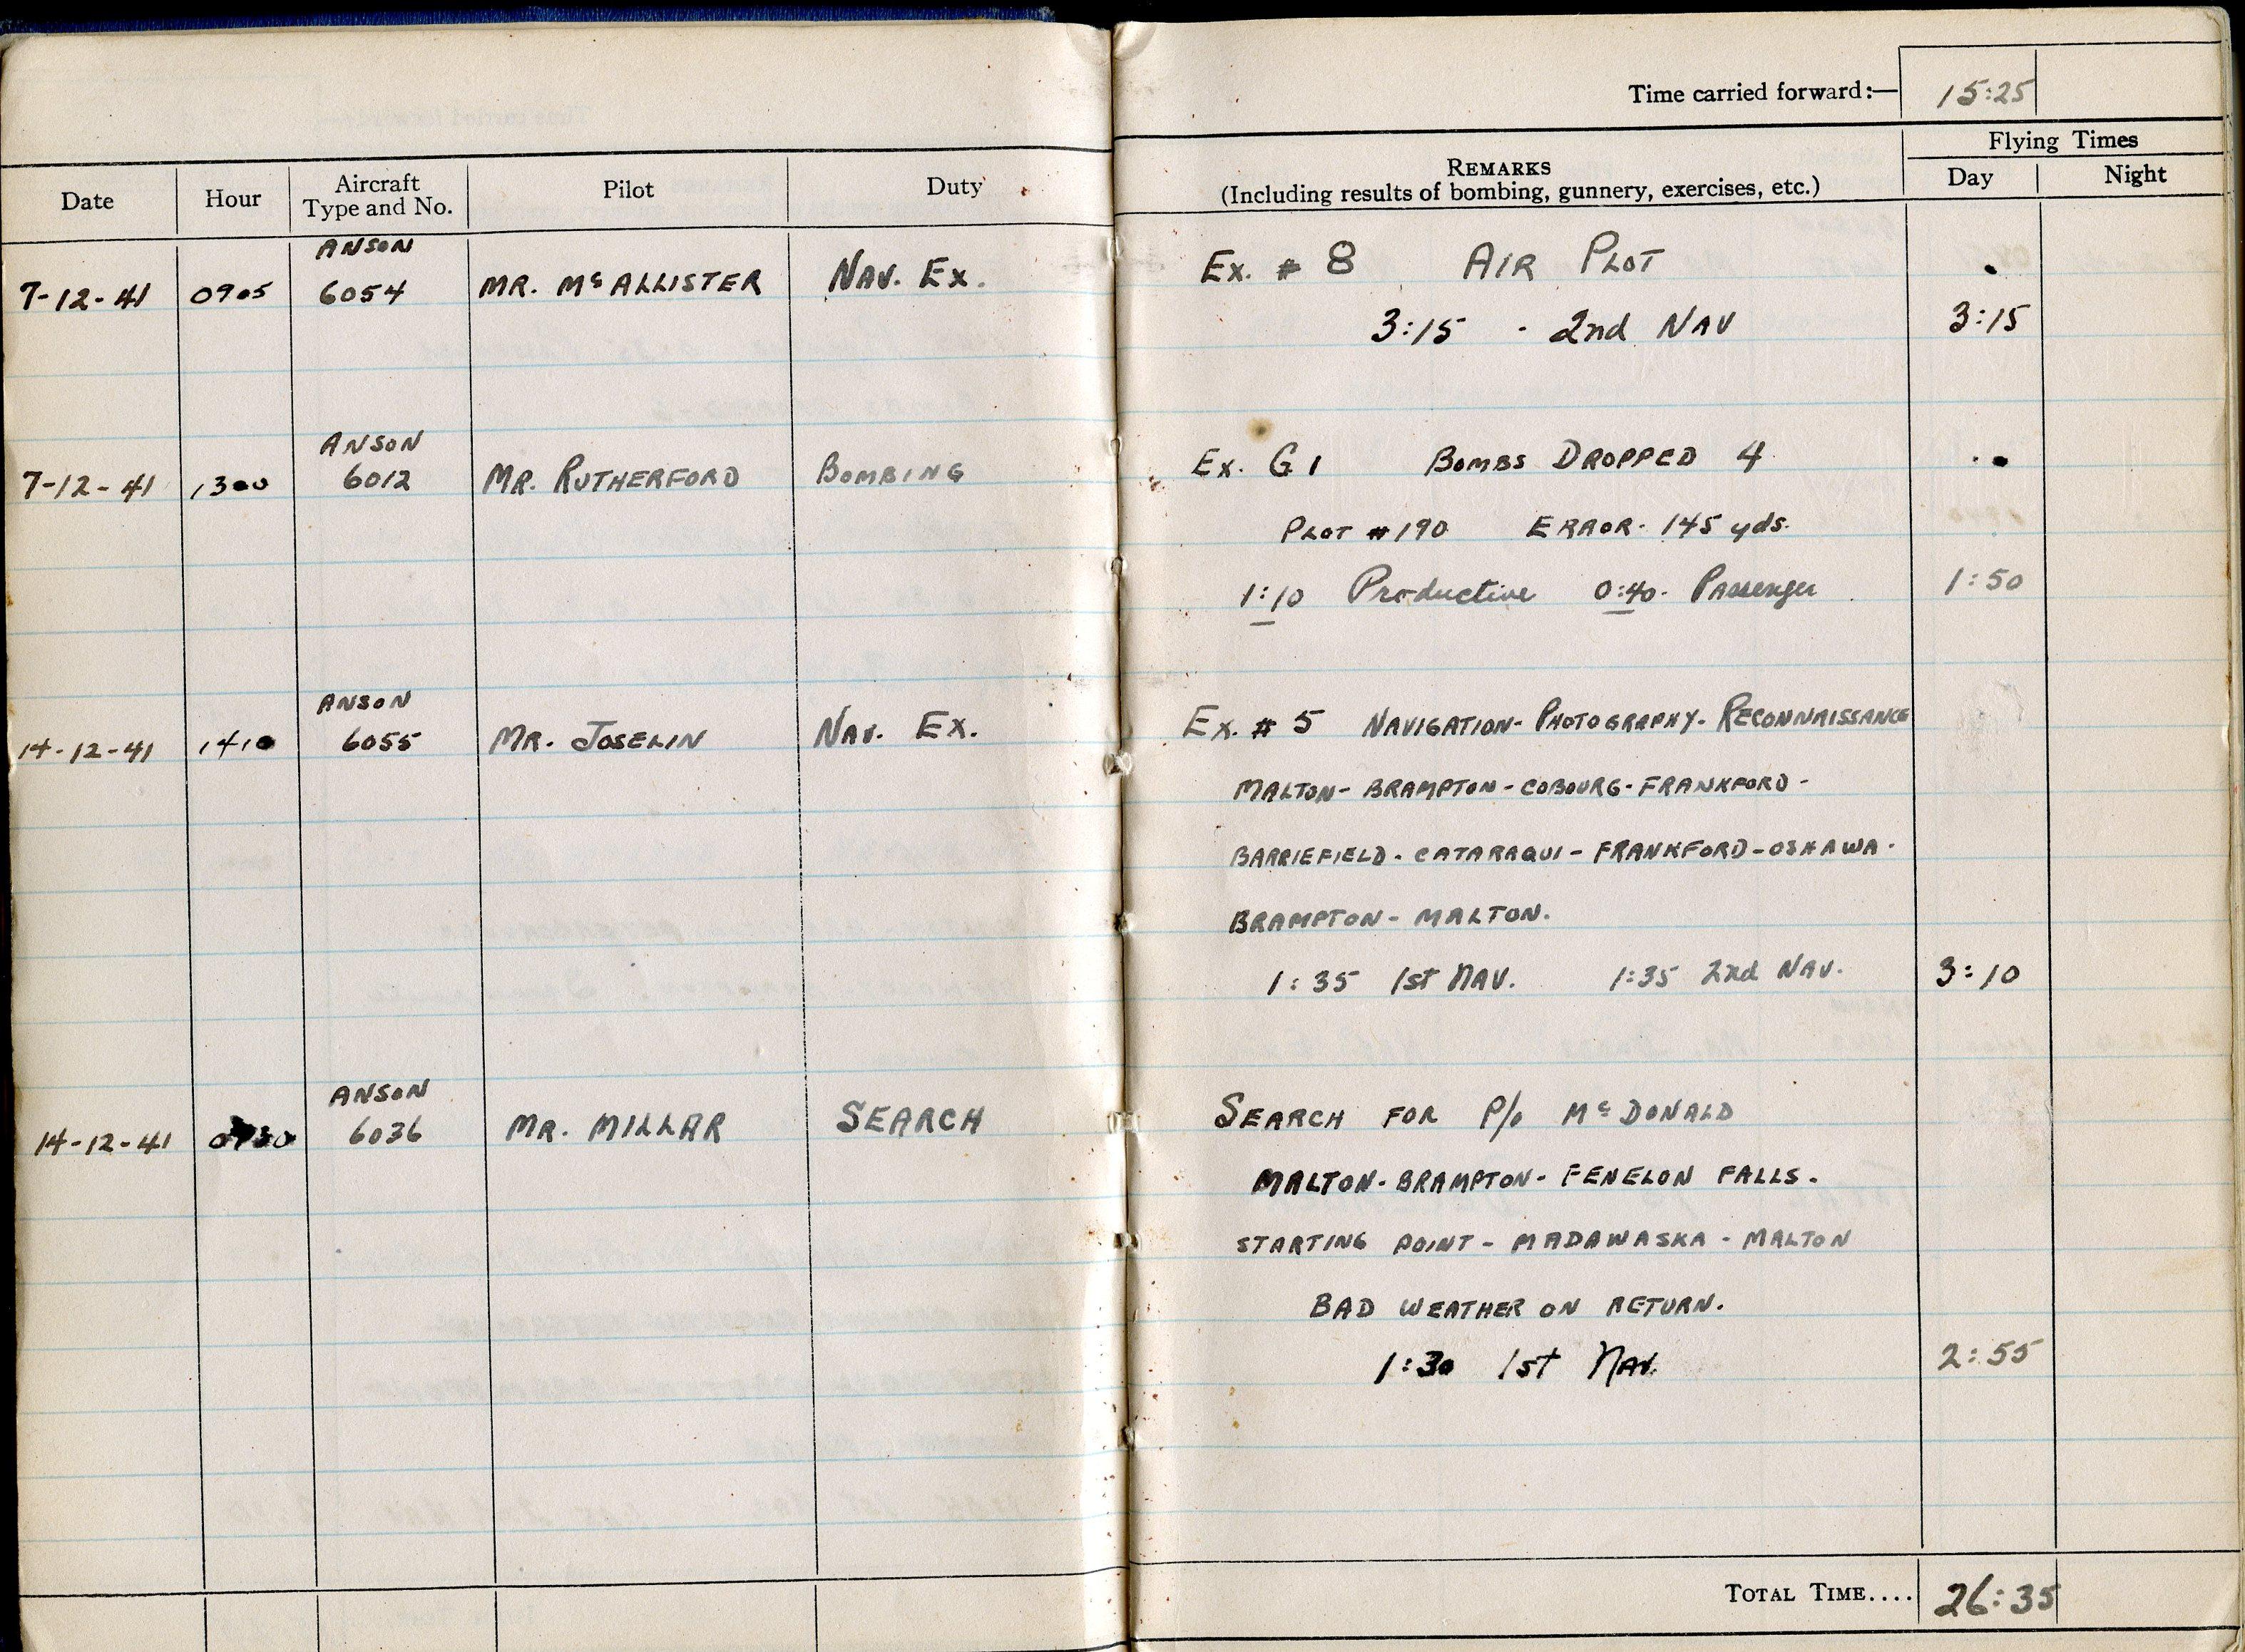 Time carried forward:— 15:25
Date Hour Aircraft Type and No. Pilot Duty REMARKS (Including results of bombing, gunnery, exercises, etc.) Flying Times Day Night
ANSON
7-12-41 0905 6054 MR. McALLISTER NAV. EX. EX. # 8 AIR PLOT
3:15 - 2nd NAV 3:15
ANSON
7-12-41 1300 6012 MR. RUTHERFORD BOMBING EX. G1 BOMBS DROPPED 4
PLOT # 190 ERROR- 145 yds.
1:10 Productive 0:40- Passenger 1:50
ANSON
14-12-41 1410 6055 MR. JOSELIN NAV. EX. EX. # 5 NAVIGATION- PHOTOGRAPHY- RECONNAISSANCE
MALTON- BRAMPTON- COBOURG- FRANKFORD-
BARRIEFIELD- CATARAQUI- FRANKFORD- OSHAWA-
BRAMPTON- MALTON.
1:35 1st NAV. 1:35 2nd NAV. 3:10
ANSON
14-12-41 6036 MR. MILLAR SEARCH SEARCH FOR P/O McDONALD
MALTON- BRAMPTON- FENELON FALLS-
STARTING POINT- MADAWASKA- MALTON
BAD WEATHER ON RETURN.
1:30 1st NAV. 2:55
TOTAL TIME.... 26:35